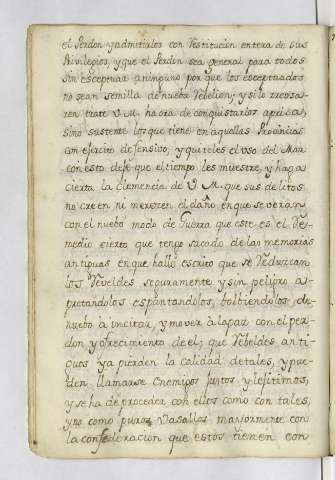 el Perdon y admitirlos con Restitucion entera de sus
Privilegios, y que el Perdon sea general para todos
sin esceptuar a ninguno por que los esceptuados
no sean semilla de nueba Rebelion; y si lo recusa
ren trate V. M. ahora de conquistarlos aprisa,
sino sustente los que tiene en aquellas Provincias
con exercito defensivo, y quiteles el uso del Mar
con esto deje que el tiempo les muestre, y haga
cierta la clemencia de V. M. que sus delitos
no creen ni merezen el daño en que se veran
con el nuebo modo de Guerra que este es el Re-
medio cierto que tengo sacado de las memorias
antiguas en que hallo escrito que se Reduzcan
los Reveldes seguramente y sin peligro a-
pretandolos espantandolos, bolbiendolos de
nuebo à incitar, y mover à la paz con el per-
don y ofrecimiento de el; que Rebeldes anti-
guos ya pierden la calidad de tales, y pue-
den llamarse Enemigos Justos y lejitimos,
y se ha de proceder con ellos como con tales,
y no como puros Vasallos maiormente con
la confederacion que estos tienen con